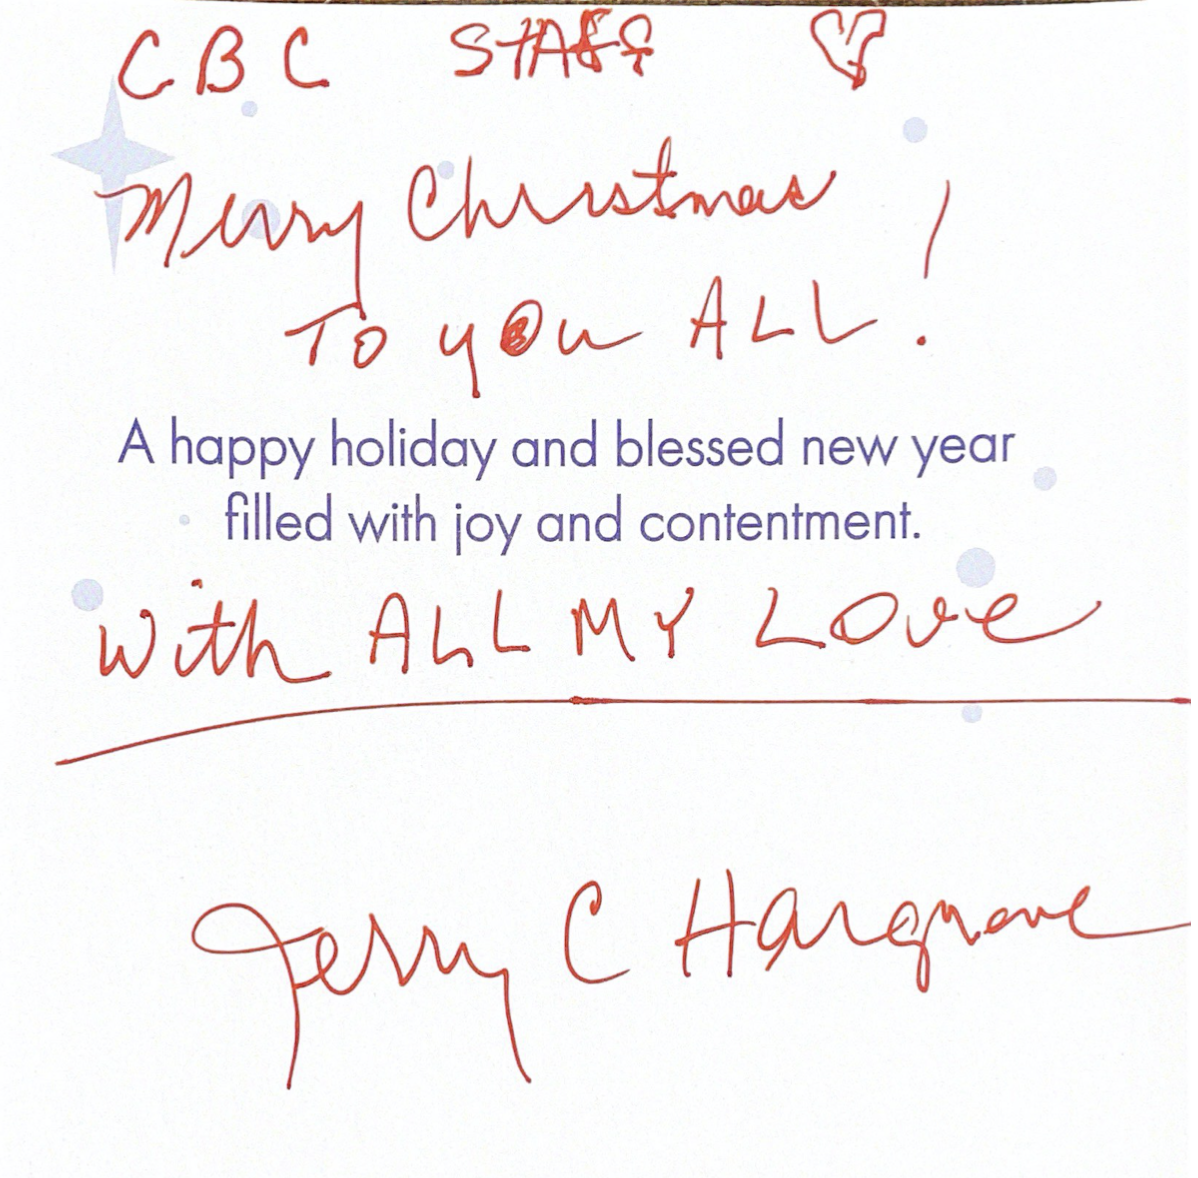 CBC STAFF ♡
Merry Christmas!
To you ALL
A happy holiday and blessed new year
filled with joy and contentment.
With ALL MY Love
Jerry C Hargrove